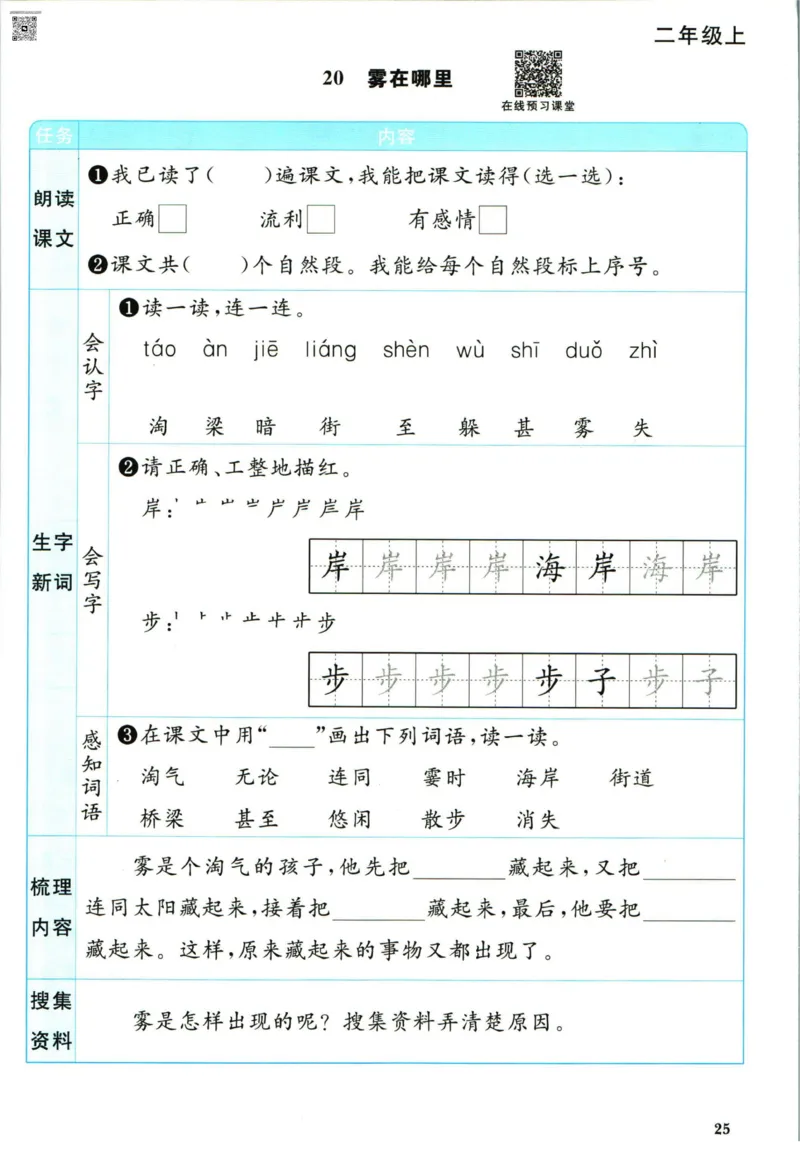 二年级上
20 雾在哪里
在线预习课堂
任务 内容
朗读课文
❶我已读了( )遍课文,我能把课文读得(选一选):
正确□ 流利□ 有感情□
❷课文共( )个自然段。我能给每个自然段标上序号。
生字新词
会认字
❶读一读,连一连。
táo àn jiē liáng shèn wù shī duǒ zhì
淘 梁 暗 街 至 躲 甚 雾 失
会写字
❷请正确、工整地描红。
岸:
岸 岸 岸 岸 海 岸 海 岸
步:
步 步 步 步 步 子 步 子
感知词语
❸在课文中用“____”画出下列词语,读一读。
淘气 无论 连同 霎时 海岸 街道
桥梁 甚至 悠闲 散步 消失
梳理内容
雾是个淘气的孩子,他先把________藏起来,又把________
连同太阳藏起来,接着把________藏起来,最后,他要把________
藏起来。这样,原来藏起来的事物又都出现了。
搜集资料
雾是怎样出现的呢?搜集资料弄清楚原因。
25